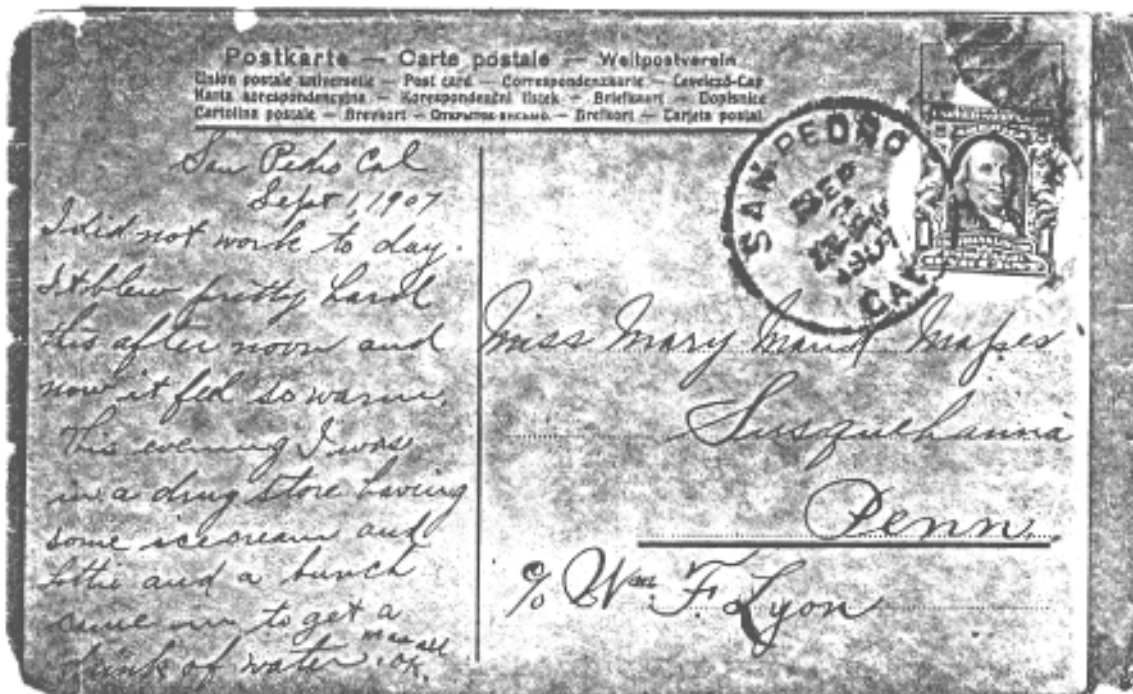 Postkarte — Carte postale — Weltpostverein
Union postale universelle — Post card — Correspondenzkarte — Levelező-Lap
Karta korespondencyjna — Korespondenční lístek — Briefkaart — Dopisnice
Cartolina postale — Brevkort — Открытое письмо. — Brefkort — Tarjeta postal
San Pedro Cal
Sept 1, 1907
I did not work to day.
It blew pretty hard
this after noon and
now it feel so warm.
This evening I was
in a drug store having
some icecream and
Lottie and a bunch
came in to get a
drink of water.
all
OK.
SAN PEDRO
SEP
1907
CAL
Miss Mary Maud Mapes
Susquehanna
Penn.
c/o Wm. F. Lyon